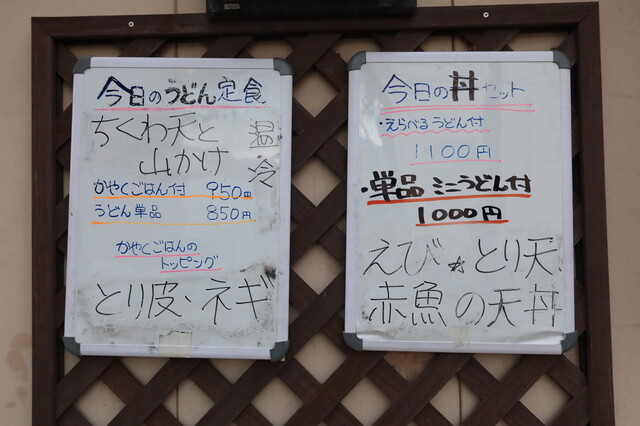 今日のうどん定食
ちくわ天と
山かけ
温・冷
かやくごはん付 950円
うどん単品 850円
かやくごはんの
トッピング
とり皮、ネギ
今日の丼セット
・えらべるうどん付
1100円
・単品 ミニうどん付
1000円
えび、とり天、
赤魚の天丼